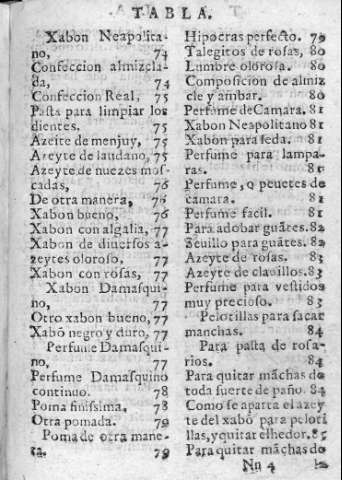 TABLA.
Xabon Neapolita-
no, 74
Confeccion almizcla-
da, 74
Confeccion Real, 75
Pasta para limpiar los
dientes. 75
Azeite de menjuy, 75
Azeyte de laudano, 75
Azeyte de nuezes mos-
cadas, 76
De otra manera, 76
Xabon bueno, 76
Xabon con algalia, 77
Xabon de diuersos a-
zeytes oloroso, 77
Xabon con rosas, 77
Xabon Damasqui-
no, 77
Otro xabon bueno, 77
Xabõ negro y duro, 77
Perfume Damasqui-
no, 77
Perfume Damasquino
continuo. 78
Poma finissima, 78
Otra pomada. 79
Poma de otra mane-
ra. 79
Hipocras perfecto. 79
Talegitos de rosas, 80
Lumbre olorosa. 80
Composicion de almiz
cle y ambar. 80
Perfume de Camara. 81
Xabon Neapolitano 81
Xabon para seda. 81
Perfume para lampa-
ras. 81
Perfume, o peuetes de
camara. 81
Perfume facil. 81
Para adobar guãtes. 82
Seuillo para guãtes. 82
Azeyte de rosas. 83
Azeyte de clauillos. 83
Perfume para vestidos
muy precioso. 83
Pelotillas para sacar
manchas. 84
Para pasta de rosa-
rios. 84
Para quitar mãchas de
toda suerte de paño. 84
Como se aparta el azey
te del xabõ para peloti
llas, y quitar el hedor. 85
Para quitar mãchas do
Nn 4 la